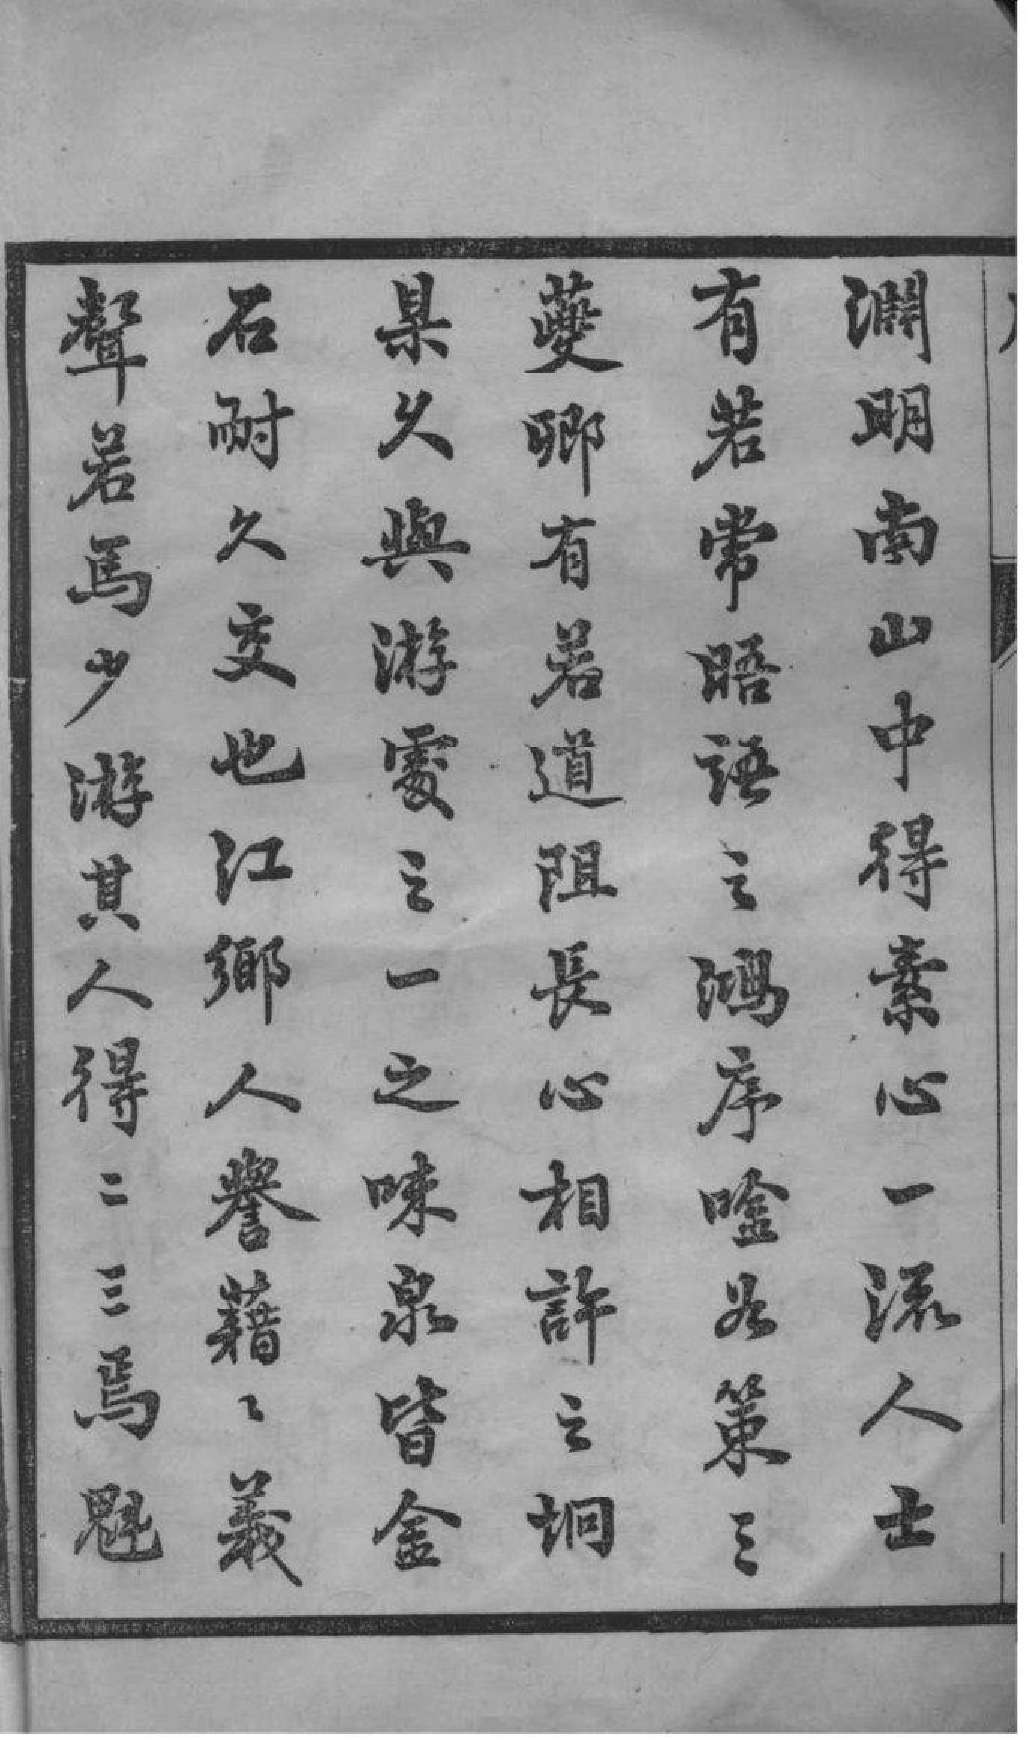 淵明南山中得素心一流人士
有若常晤語之鴻序唫如策三
夔卿有若道阻長心相許之坰
杲久與游處之一之味泉皆金
石耐久交也江鄉人譽藉〻義
聲若馬少游其人得二三焉魁